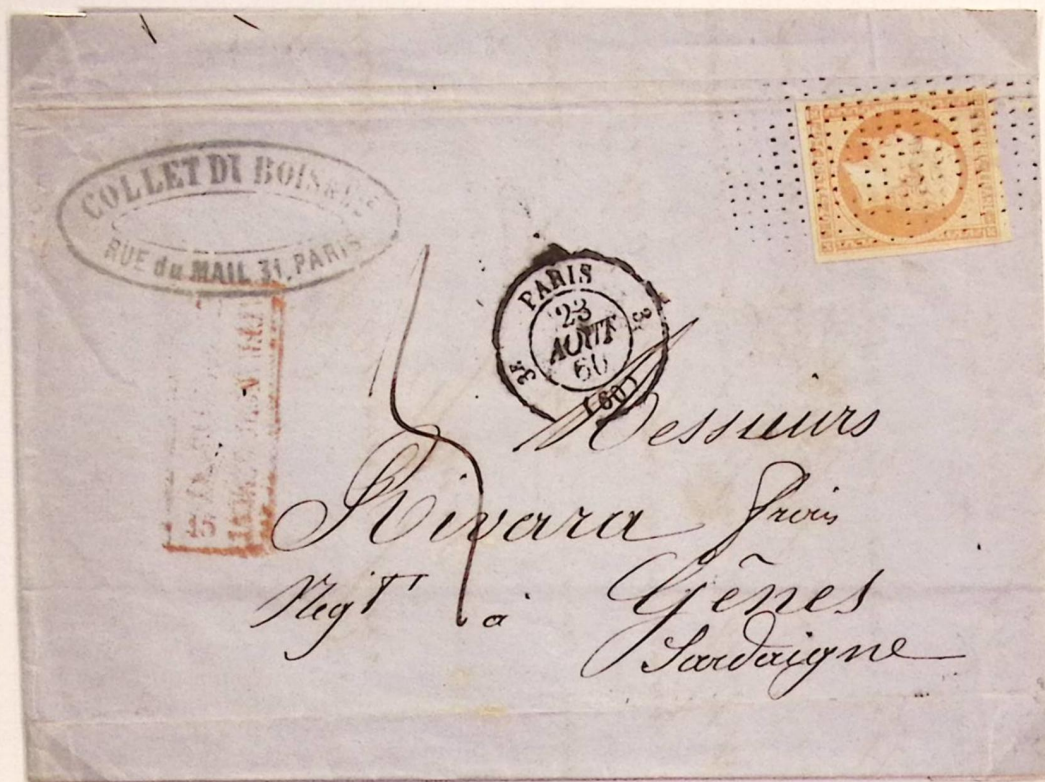 COLLET DU BOIS & Cie
RUE du MAIL 31, PARIS
PARIS
3E 3E
23
AOUT
60
(60)
Messieurs
Rivara frères
Négts à Gênes
Sardaigne